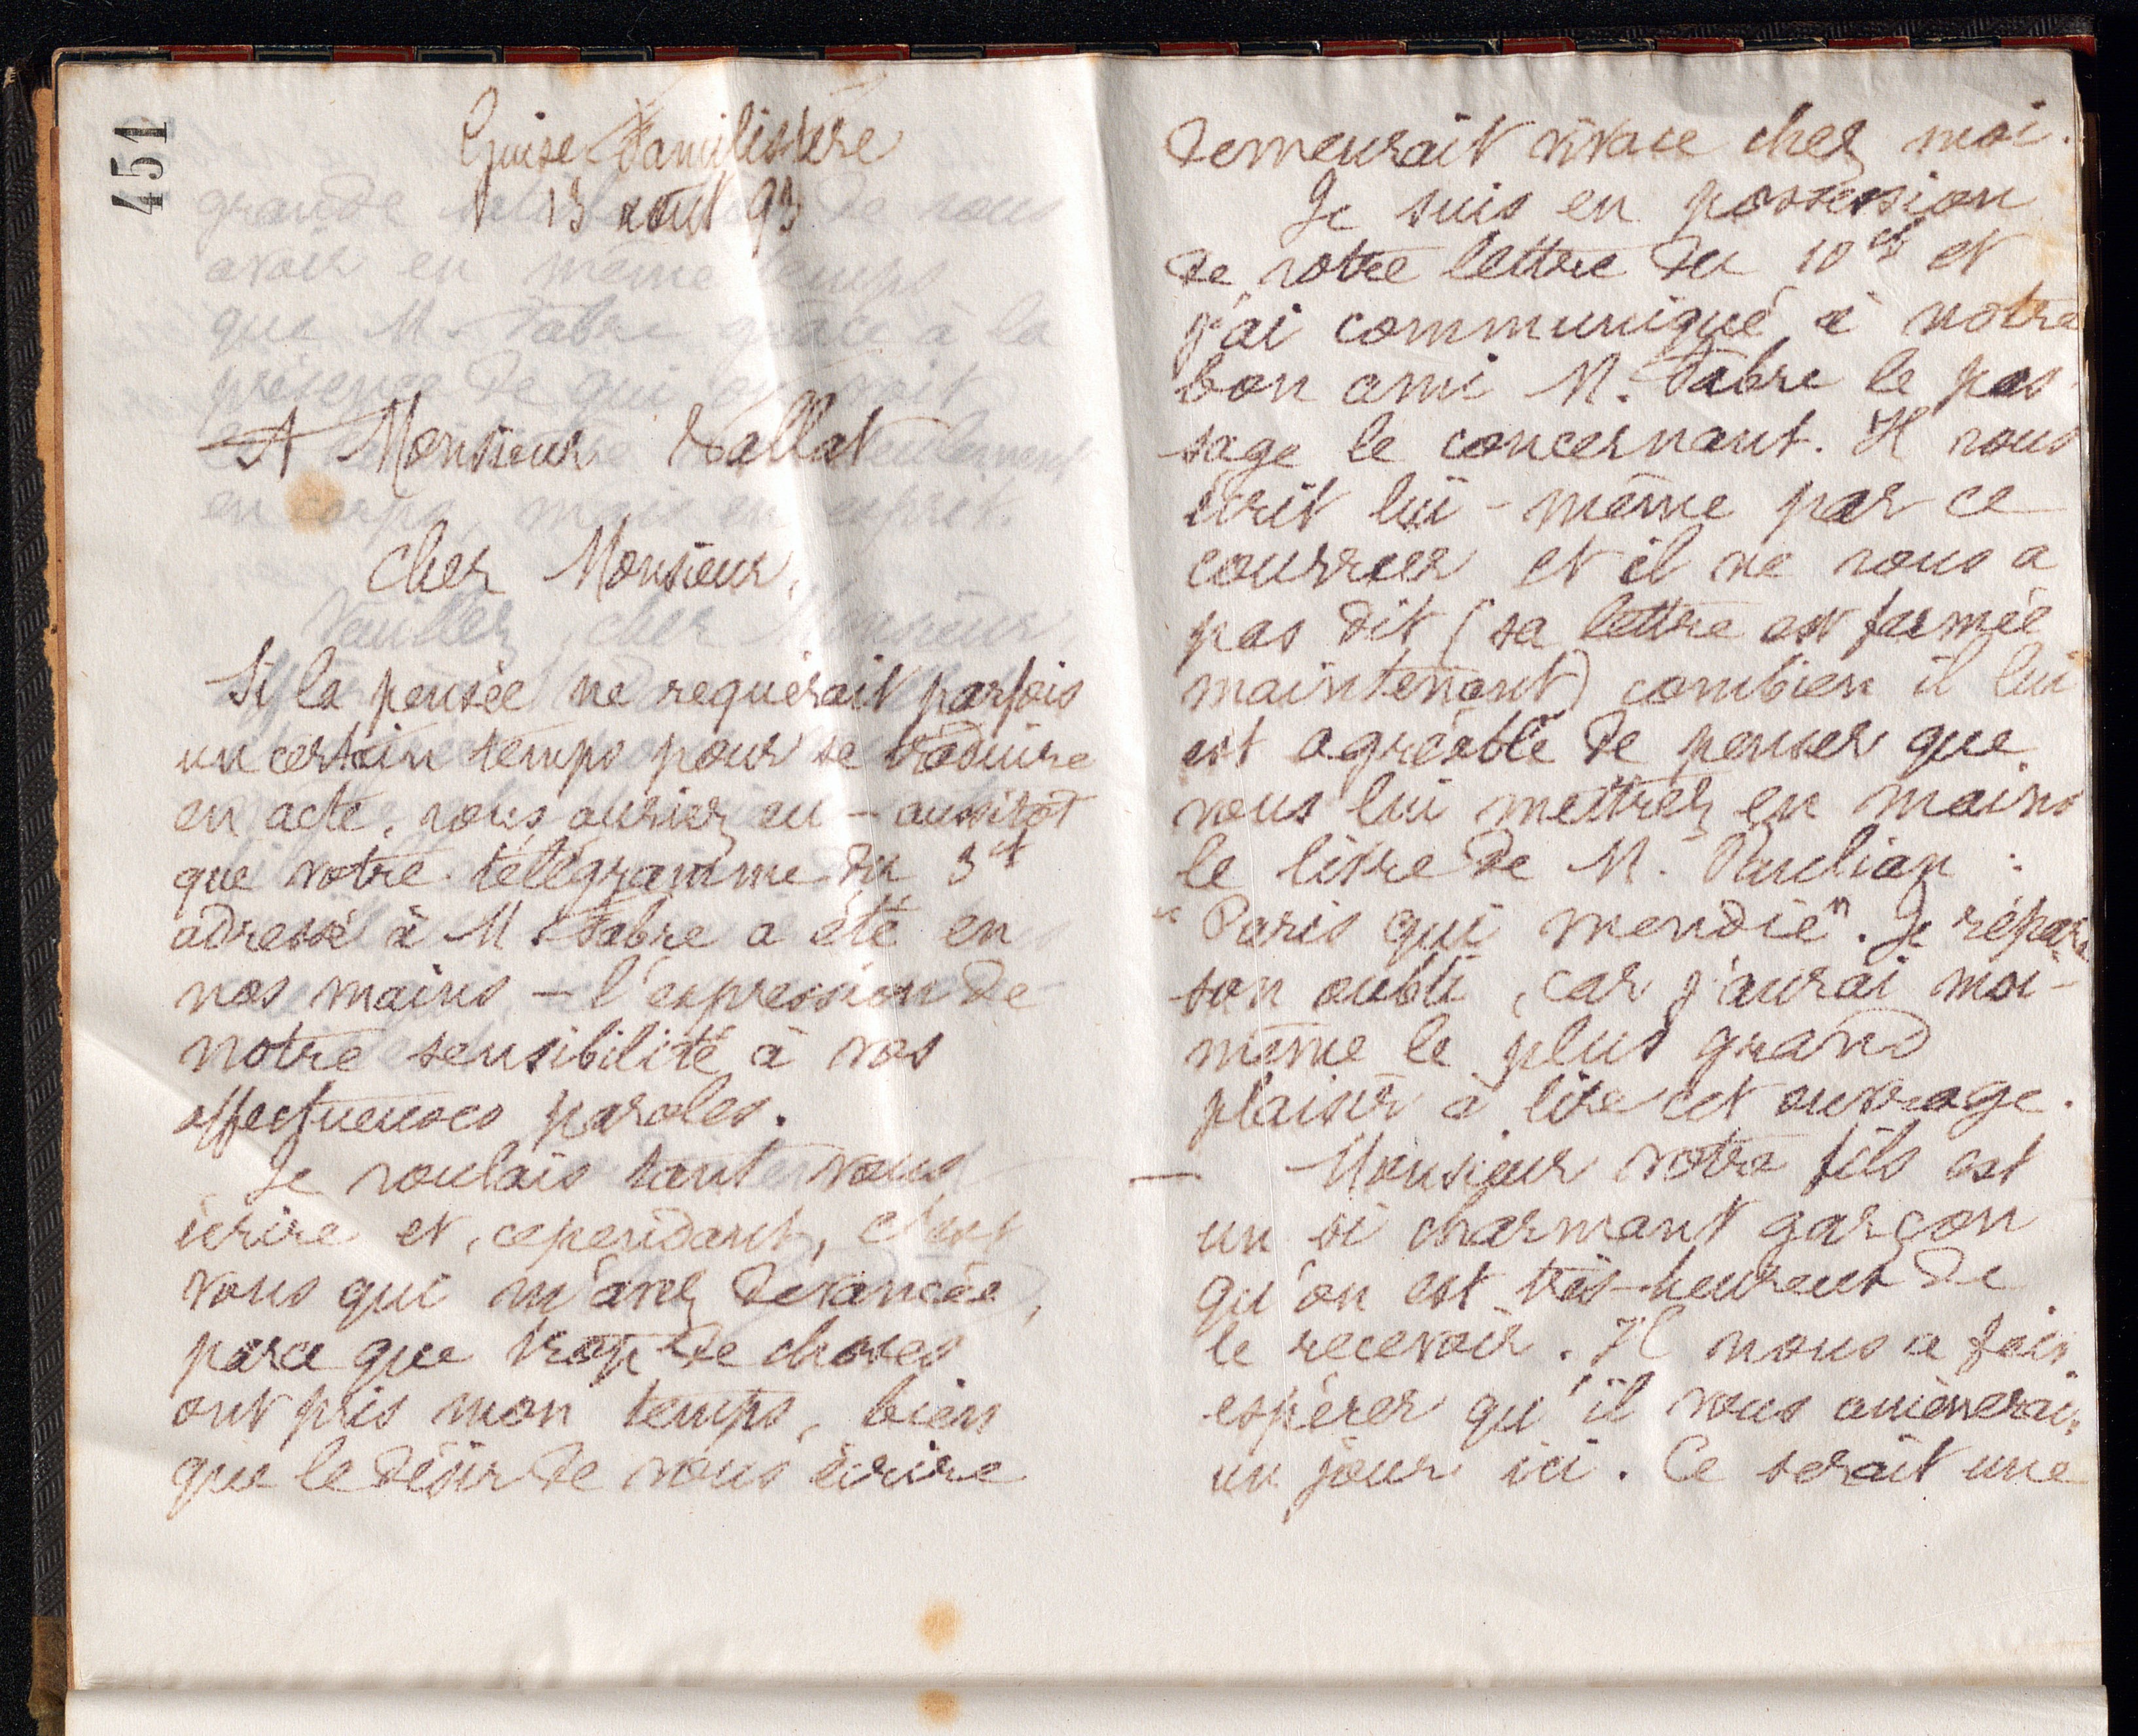 451
Guise Familistère
13 août 93
A Monsieur Vallat
Cher Monsieur,
Si la pensée ne requérait parfois
un certain temps pour se traduire
en acte, vous auriez eu – aussitôt
que votre télégramme du 3 ct
adressé à M. Fabre a été en
nos mains, – l'expression de
notre sensibilité à vos
affectueuses paroles.
Je voulais tant vous
écrire et, cependant, c'est
vous qui m'avez devancée,
parce que trop de choses
ont pris mon temps, bien
que le désir de vous écrire
demeurait vivace chez moi.
Je suis en possession
de votre lettre du 10 ct et
j'ai communiqué à notre
bon ami M. Fabre le pas
sage le concernant. Il vous
écrit lui-même par ce
courrier et il ne vous a
pas dit (sa lettre est fermée
maintenant) combien il lui
est agréable de penser que
vous lui mettrez en mains
le livre de M. Paulian :
"Paris qui mendie". Je répare
son oubli, car j'aurai moi-
même le plus grand
plaisir à lire cet ouvrage.
— Monsieur votre fils est
un si charmant garçon
qu'on est très-heureux de
le recevoir. Il nous a fait
espérer qu'il vous amènerait
un jour ici. Ce serait une